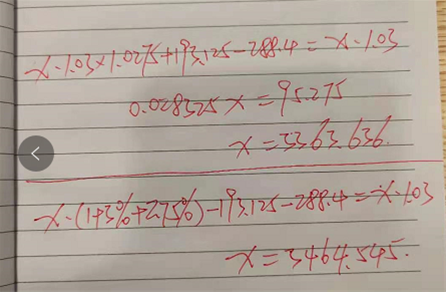 x·1.03×1.0275+193.125-288.4=x·1.03
0.028325x=95.275
x=3363.636.
x·(1+3%+2.75%)-193.125-288.4=x·1.03
x=3464.545.